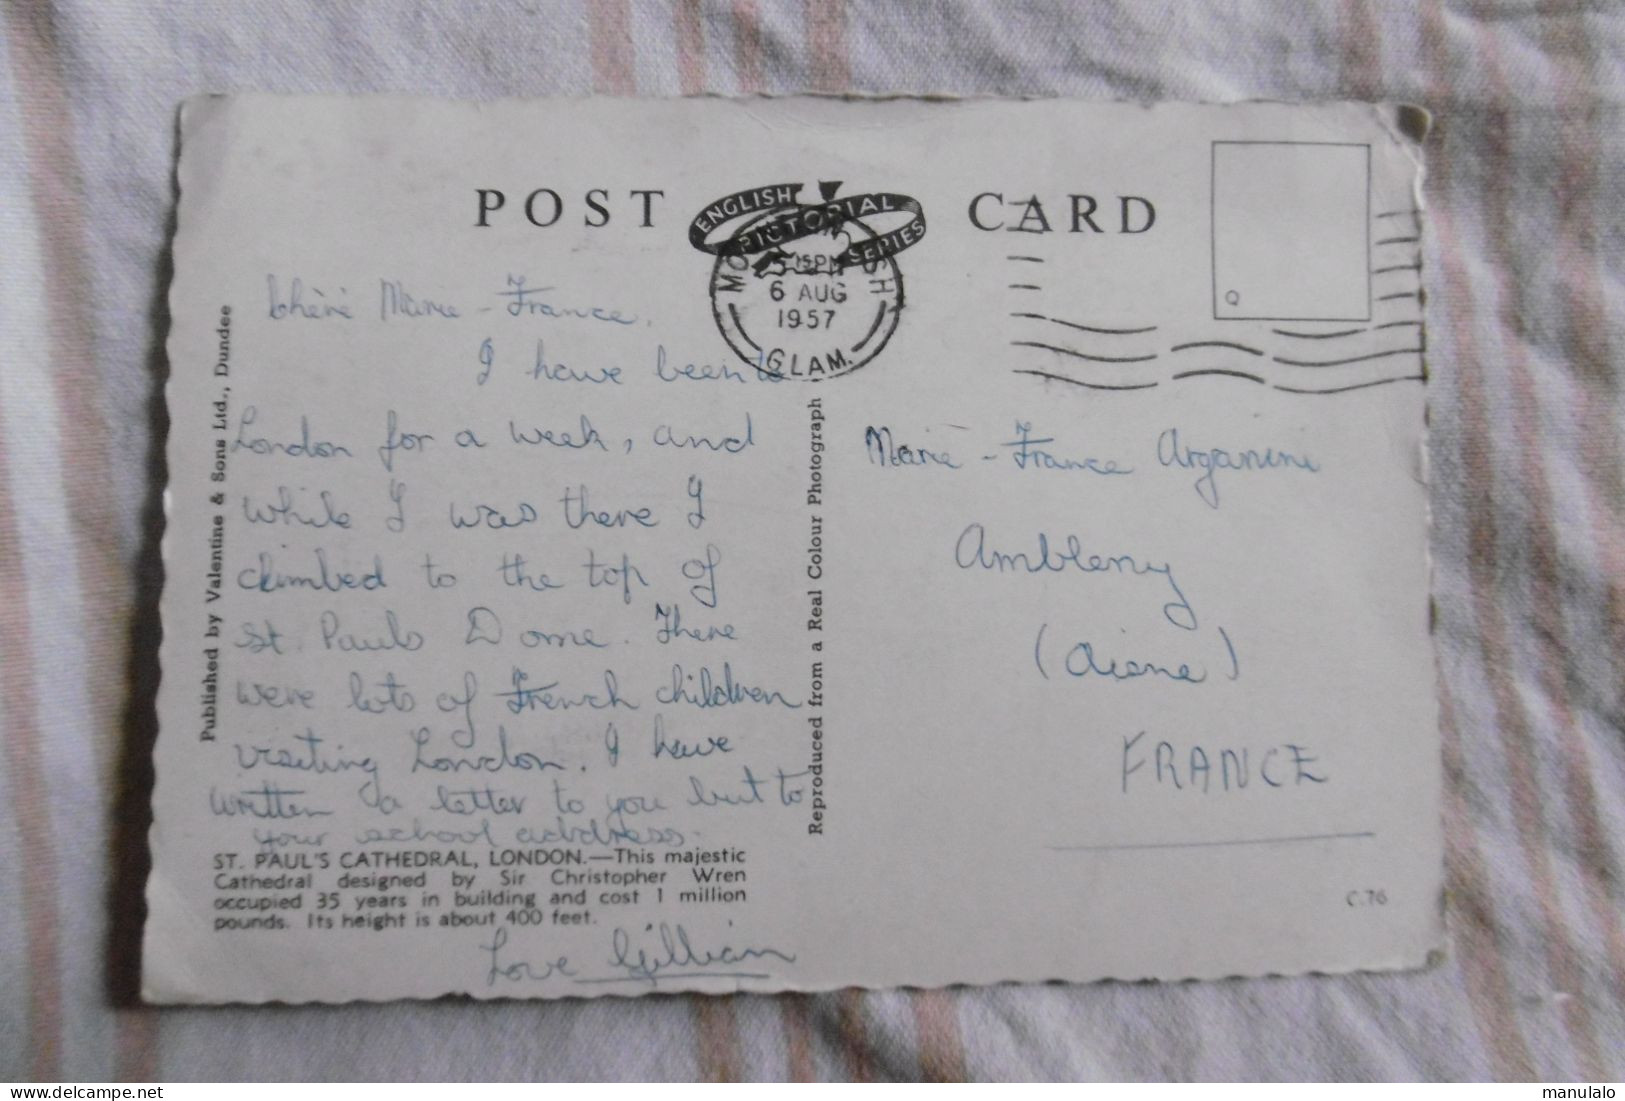 POST CARD
ENGLISH PICTORIAL SERIES
5 15PM
6 AUG
1957
GLAM.
Q
Chère Marie-France.
I have been to
London for a week, and
while I was there I
climbed to the top of
St. Pauls Dome. There
were lots of French children
visiting London. I have
written a letter to you but to
your school address.
ST. PAUL'S CATHEDRAL, LONDON.—This majestic
Cathedral designed by Sir Christopher Wren
occupied 35 years in building and cost 1 million
pounds. Its height is about 400 feet.
Love Gillian
Published by Valentine & Sons Ltd., Dundee
Reproduced from a Real Colour Photograph
Marie-France Arganini
Ambleny
(Aisne)
FRANCE
C.76
manulalo